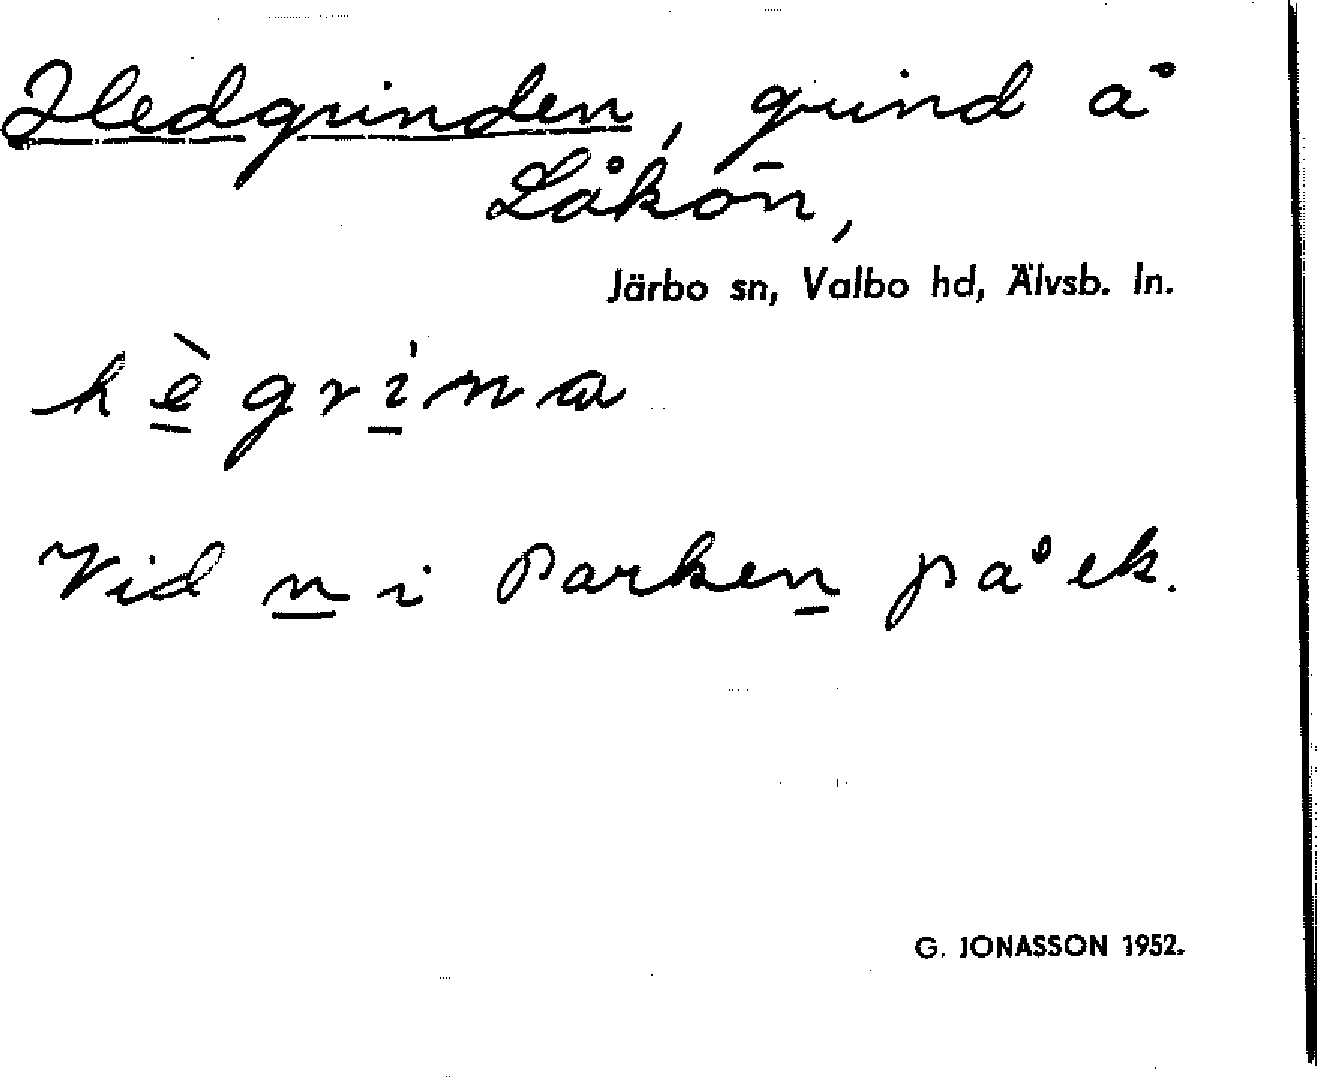 Hedgrinden, grind å
Låkön,
Järbo sn, Valbo hd, Älvsb. ln.
hègrina
Vid n i Parken på ek.
G. JONASSON 1952.